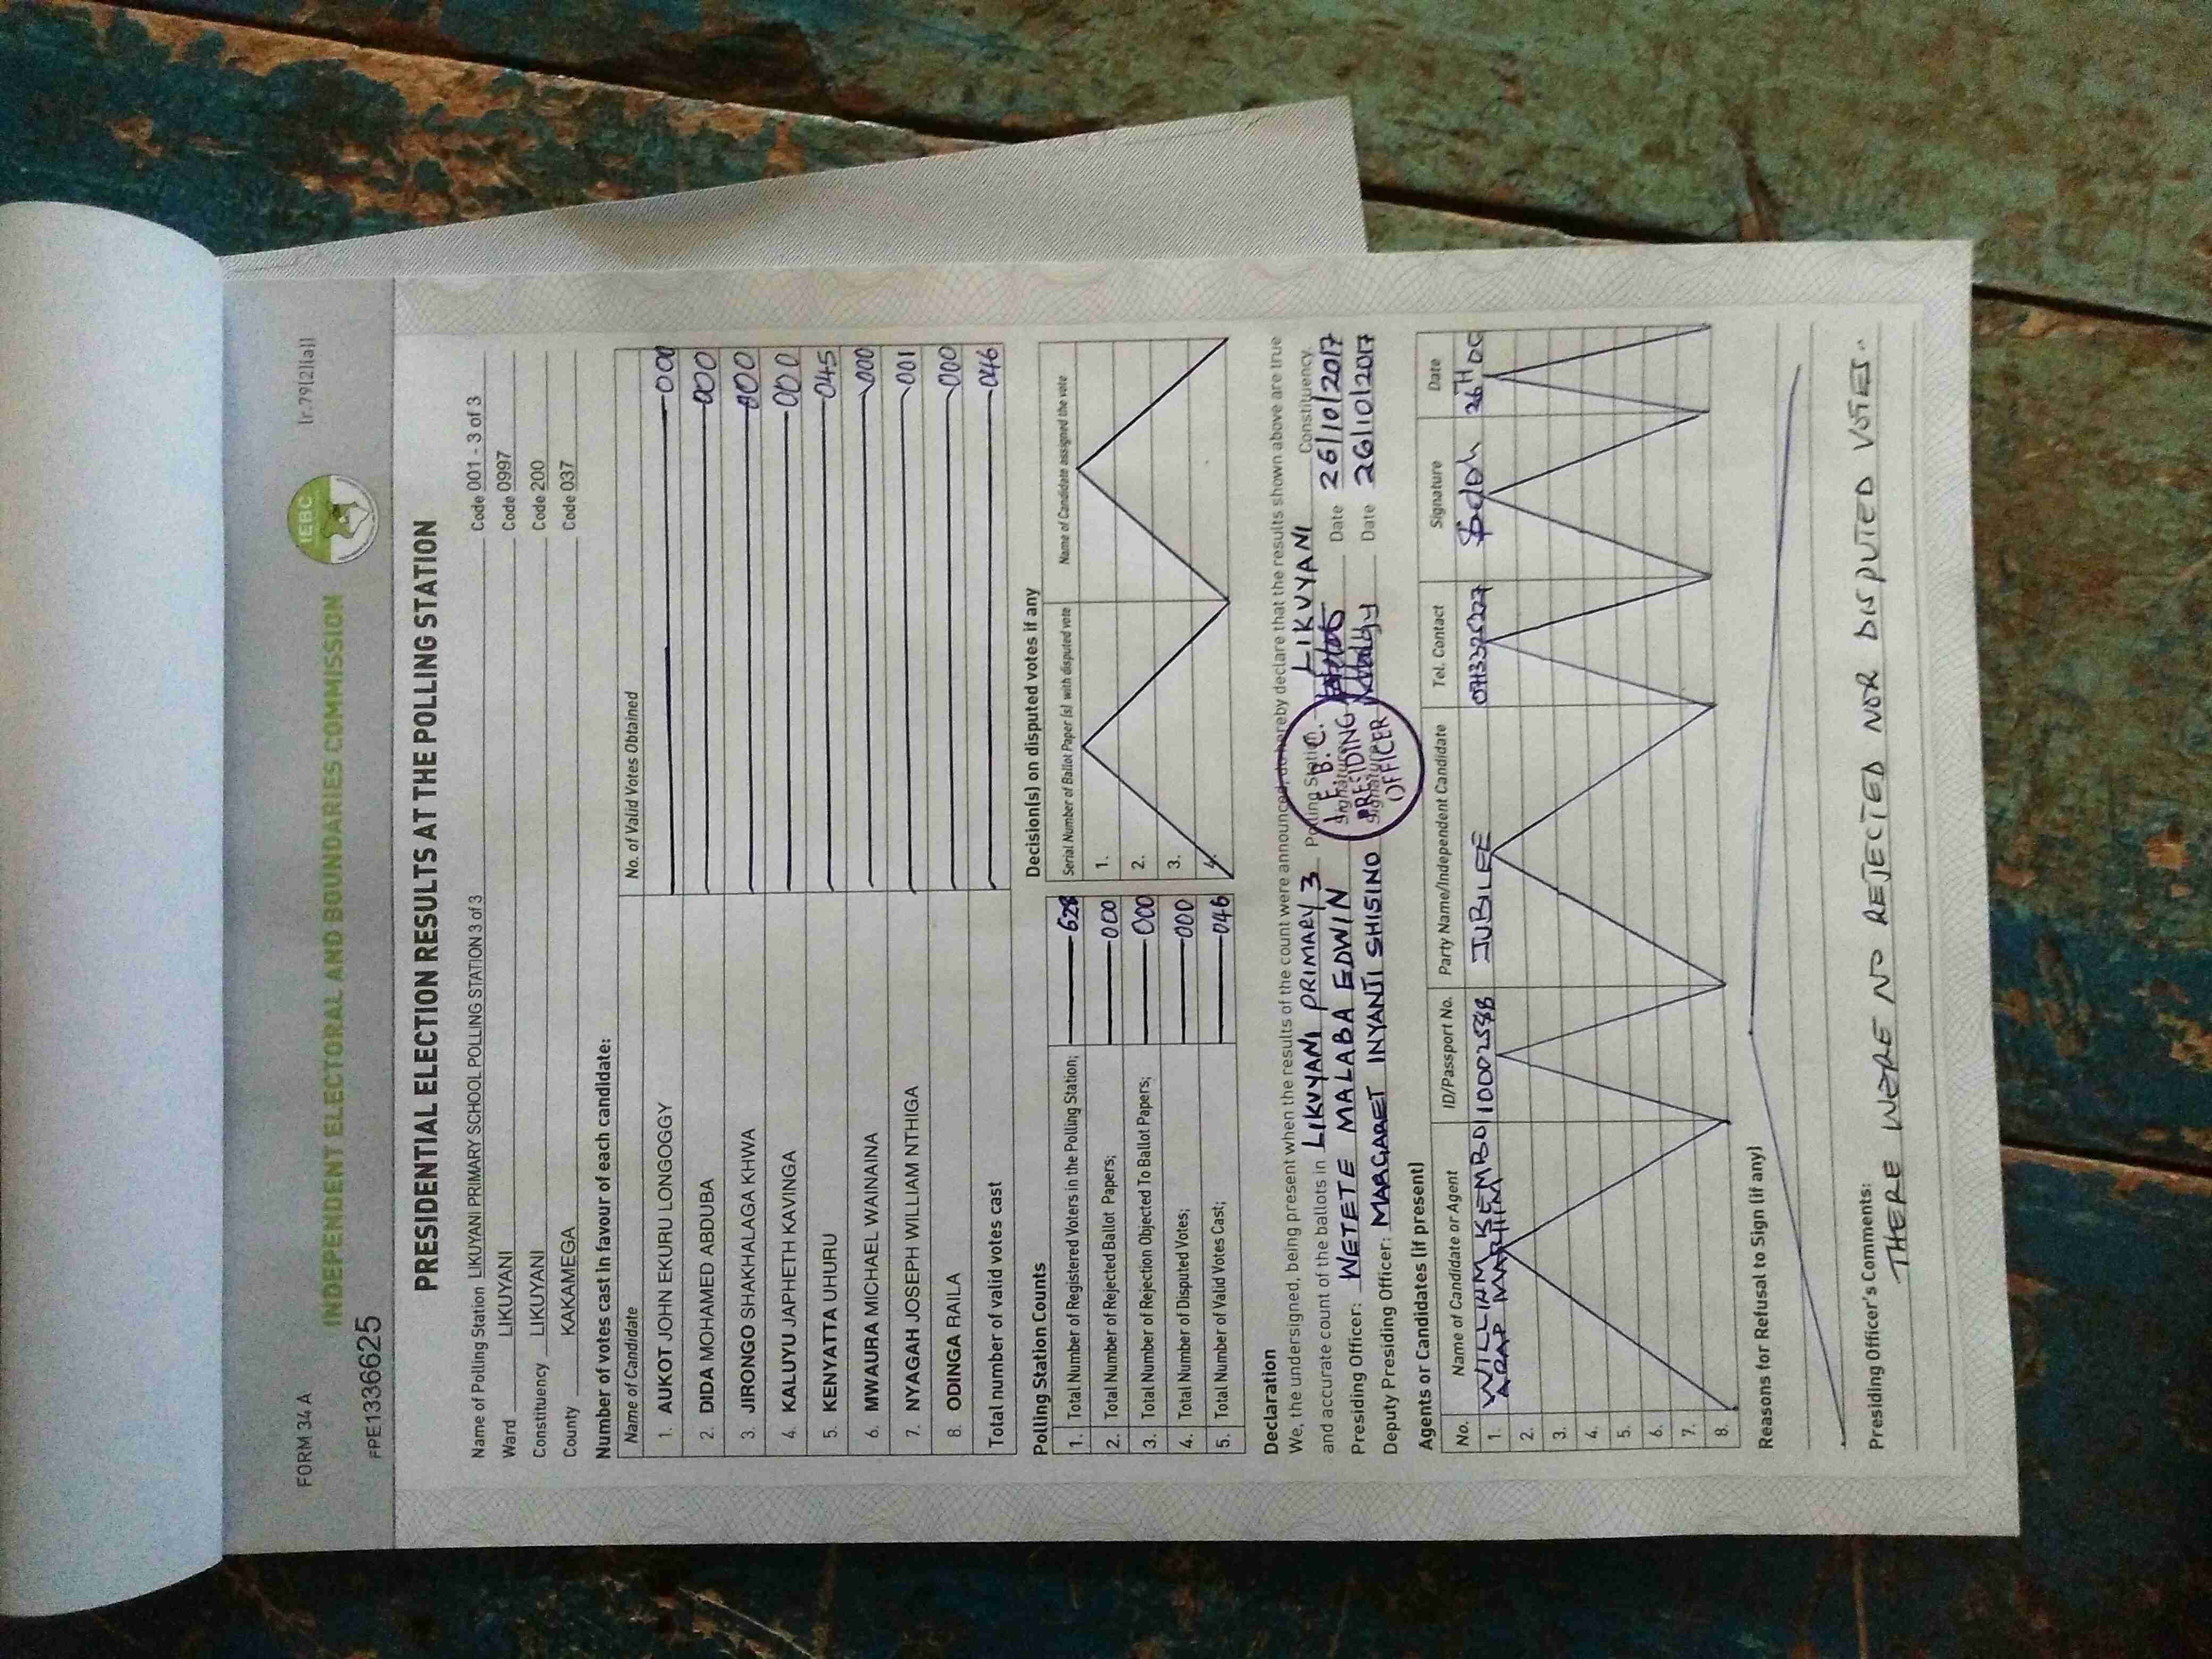 FORM 34 A
INDEPENDENT ELECTORAL AND BOUNDARIES COMMISSION
IEBC
(r.79(2)(a))
FPE1336625
PRESIDENTIAL ELECTION RESULTS AT THE POLLING STATION
Name of Polling Station LIKUYANI PRIMARY SCHOOL POLLING STATION 3 of 3 Code 001 - 3 of 3
Ward LIKUYANI Code 0997
Constituency LIKUYANI Code 200
County KAKAMEGA Code 037
Number of votes cast in favour of each candidate:
Name of Candidate No. of Valid Votes Obtained
1. AUKOT JOHN EKURU LONGOGGY 000
2. DIDA MOHAMED ABDUBA 000
3. JIRONGO SHAKHALAGA KHWA 000
4. KALUYU JAPHETH KAVINGA 000
5. KENYATTA UHURU 045
6. MWAURA MICHAEL WAINAINA 000
7. NYAGAH JOSEPH WILLIAM NTHIGA 001
8. ODINGA RAILA 000
Total number of valid votes cast 046
Polling Station Counts
1. Total Number of Registered Voters in the Polling Station; 628
2. Total Number of Rejected Ballot Papers; 000
3. Total Number of Rejection Objected To Ballot Papers; 000
4. Total Number of Disputed Votes; 000
5. Total Number of Valid Votes Cast; 046
Decision(s) on disputed votes if any
Serial Number of Ballot Paper (s) with disputed vote Name of Candidate assigned the vote
1.
2.
3.
4.
Declaration
We, the undersigned, being present when the results of the count were announced, do hereby declare that the results shown above are true
and accurate count of the ballots in LIKUYANI PRIMARY 3 Polling Station LIKUYANI Constituency.
Presiding Officer: WETETE MALABA EDWIN Signature Date 26/10/2017
Deputy Presiding Officer: MARGARET INYANJI SHISINO Signature Date 26/10/2017
I.E.B.C.
PRESIDING
OFFICER
Agents or Candidates (if present)
No. Name of Candidate or Agent ID/Passport No. Party Name/Independent Candidate Tel. Contact Signature Date
1. WILLIAM KEMBOI JUBILEE 26TH OC
ARAP
2.
3.
4.
5.
6.
7.
8.
Reasons for Refusal to Sign (if any)
Presiding Officer's Comments:
THERE WERE NO REJECTED NOR DISPUTED VOTES.